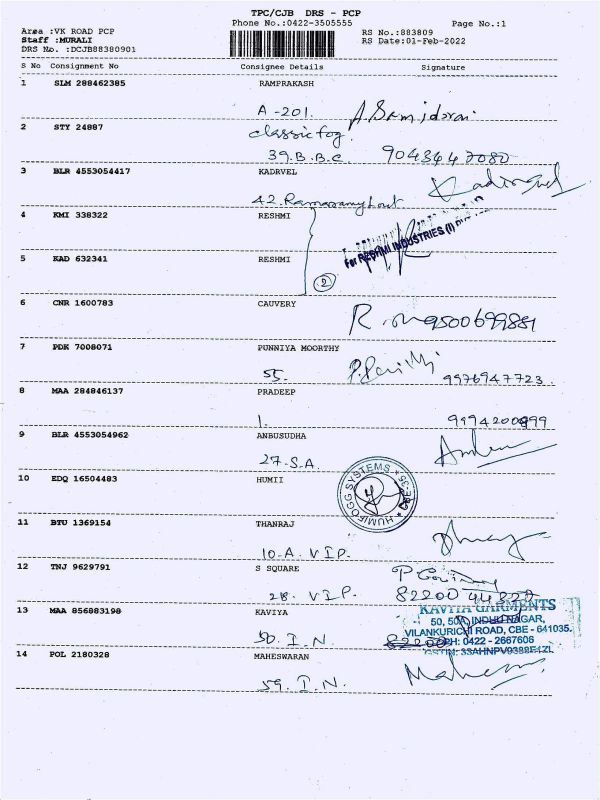 TPC/CJB DRS - PCP
Phone No.:0422-3505555
Page No.:1
Area :VK ROAD PCP
Staff :MURALI
DRS No. :DCJB88380901
RS No.:883809
RS Date:01-Feb-2022
S No Consignment No Consignee Details Signature
1 SLM 288462385 RAMPRAKASH
A -201.
2 STY 24887
classic fog
39.B.B.C. 9043447080
3 BLR 4553054417 KADRVEL
42.
4 KMI 338322 RESHMI
For RESHMI INDUSTRIES (I)
5 KAD 632341 RESHMI
2
6 CNR 1600783 CAUVERY
9500699881
7 PDK 7008071 PUNNIYA MOORTHY
55. 9976947723
8 MAA 284846137 PRADEEP
1.
9 BLR 4553054962 ANBUSUDHA
27.S.A.
10 EDQ 16504483 HUMII
HUMIFOGG SYSTEMS
11 BTU 1369154 THANRAJ
10-A. V.I.P.
12 TNJ 9629791 S SQUARE
28. V.I.P. 82200
13 MAA 856883198 KAVIYA
KAVIYA GARMENTS
50, 50A, INDU NAGAR,
VILANKURICHI ROAD, CBE - 641035.
50. I.N. PH: 0422 - 2667606
14 POL 2180328 MAHESWARAN
59. I.N.